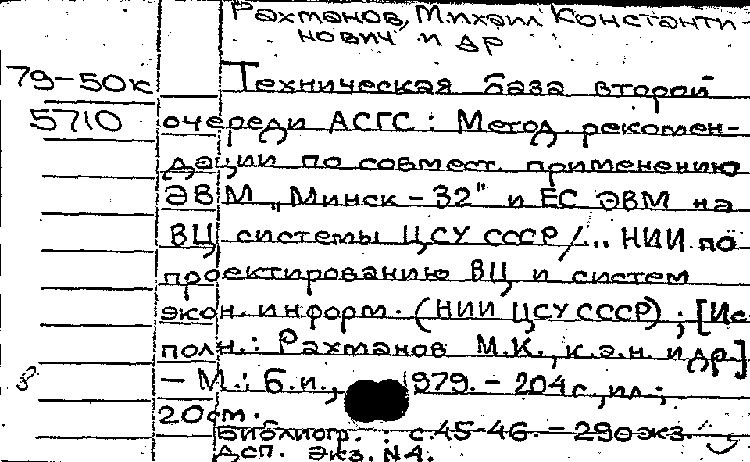 Рахманов, Михаил Константи-
нович и др
79-50к Техническая база второй
5710 очереди АСГС: Метод. рекомен-
дации по совмест. применению
ЭВМ „Минск-32" и ЕС ЭВМ на
ВЦ системы ЦСУ СССР/... НИИ по
проектированию ВЦ и систем
экон. информ. (НИИ ЦСУ СССР); [Ис-
полн.: Рахманов М.К., к.э.н. и др]
- М.: Б.и., 1979. - 204 с., ил.;
20 см.
Библиогр.: с.45-46. - 290 экз.
Дсп. Экз. N4.